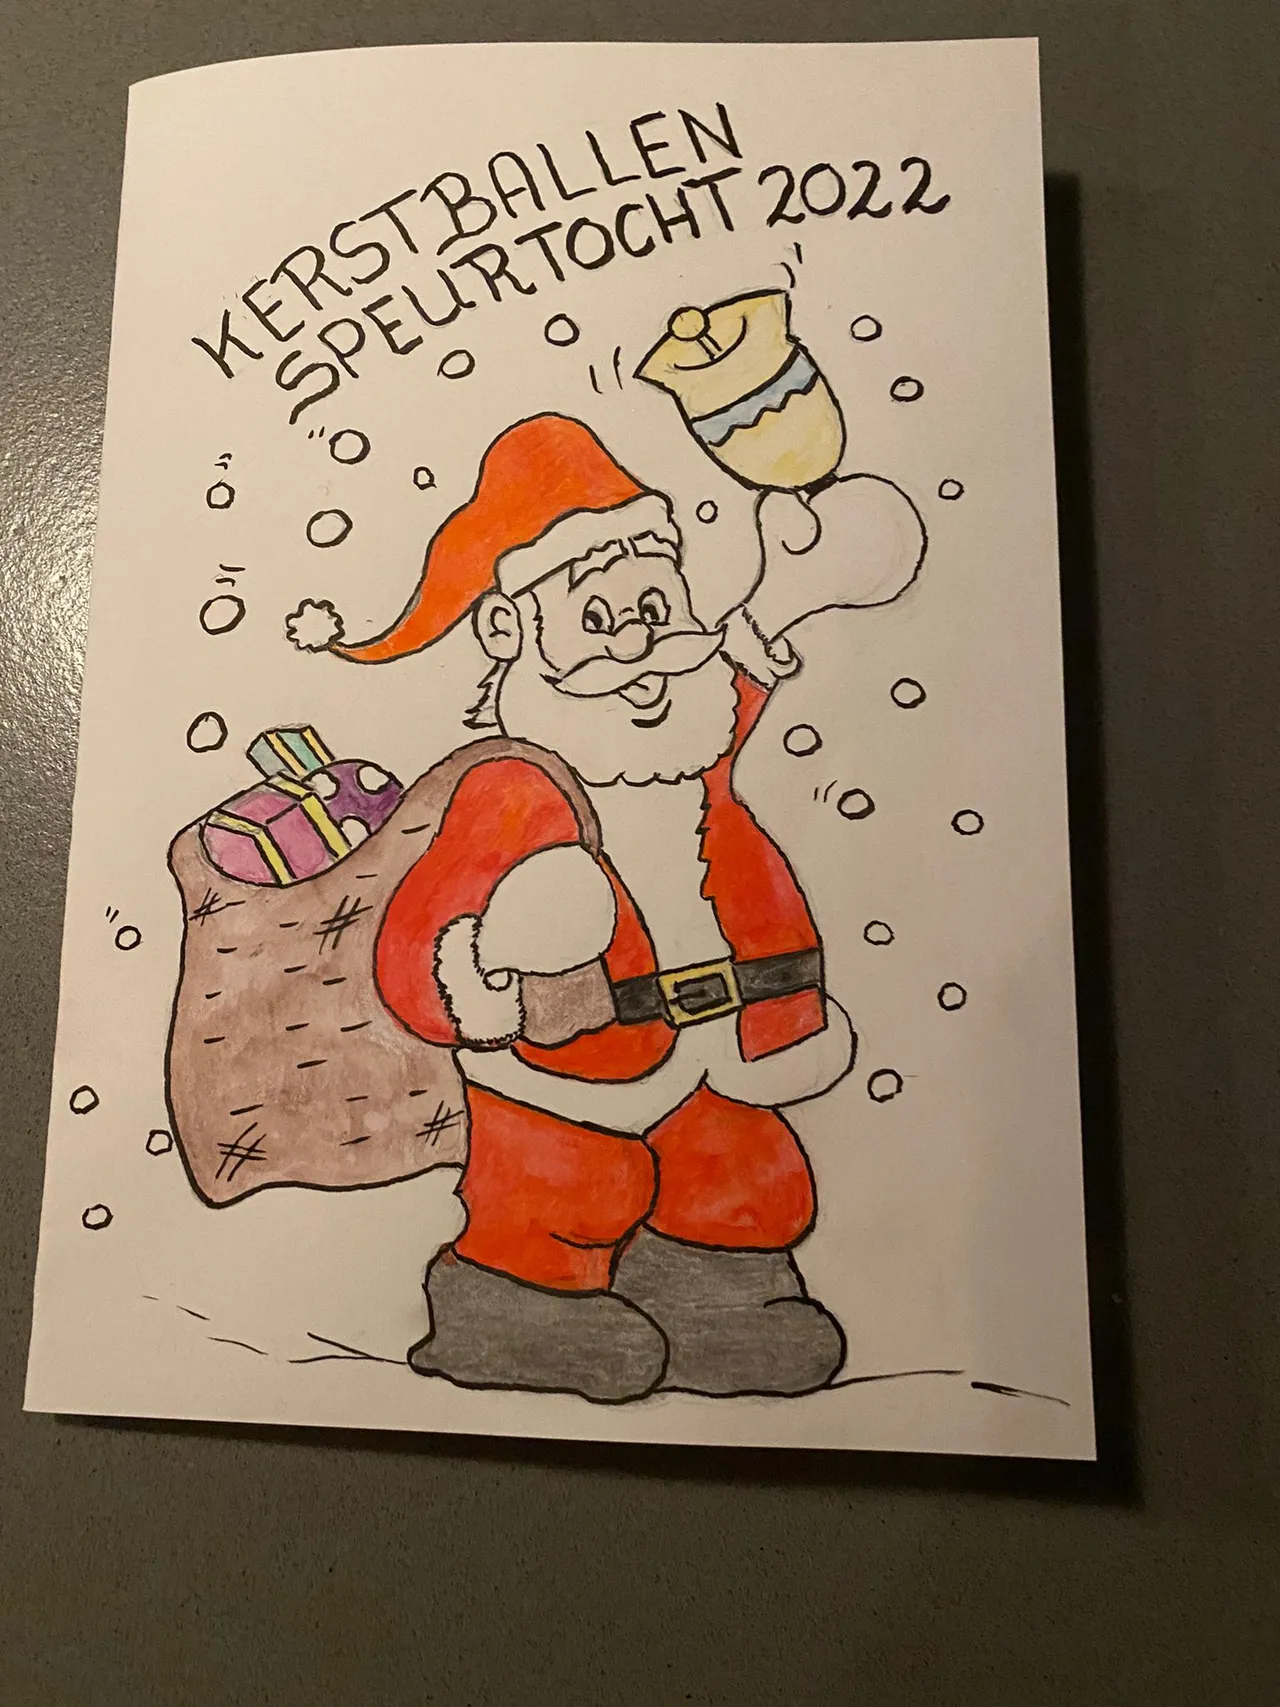 KERSTBALLEN
SPEURTOCHT 2022